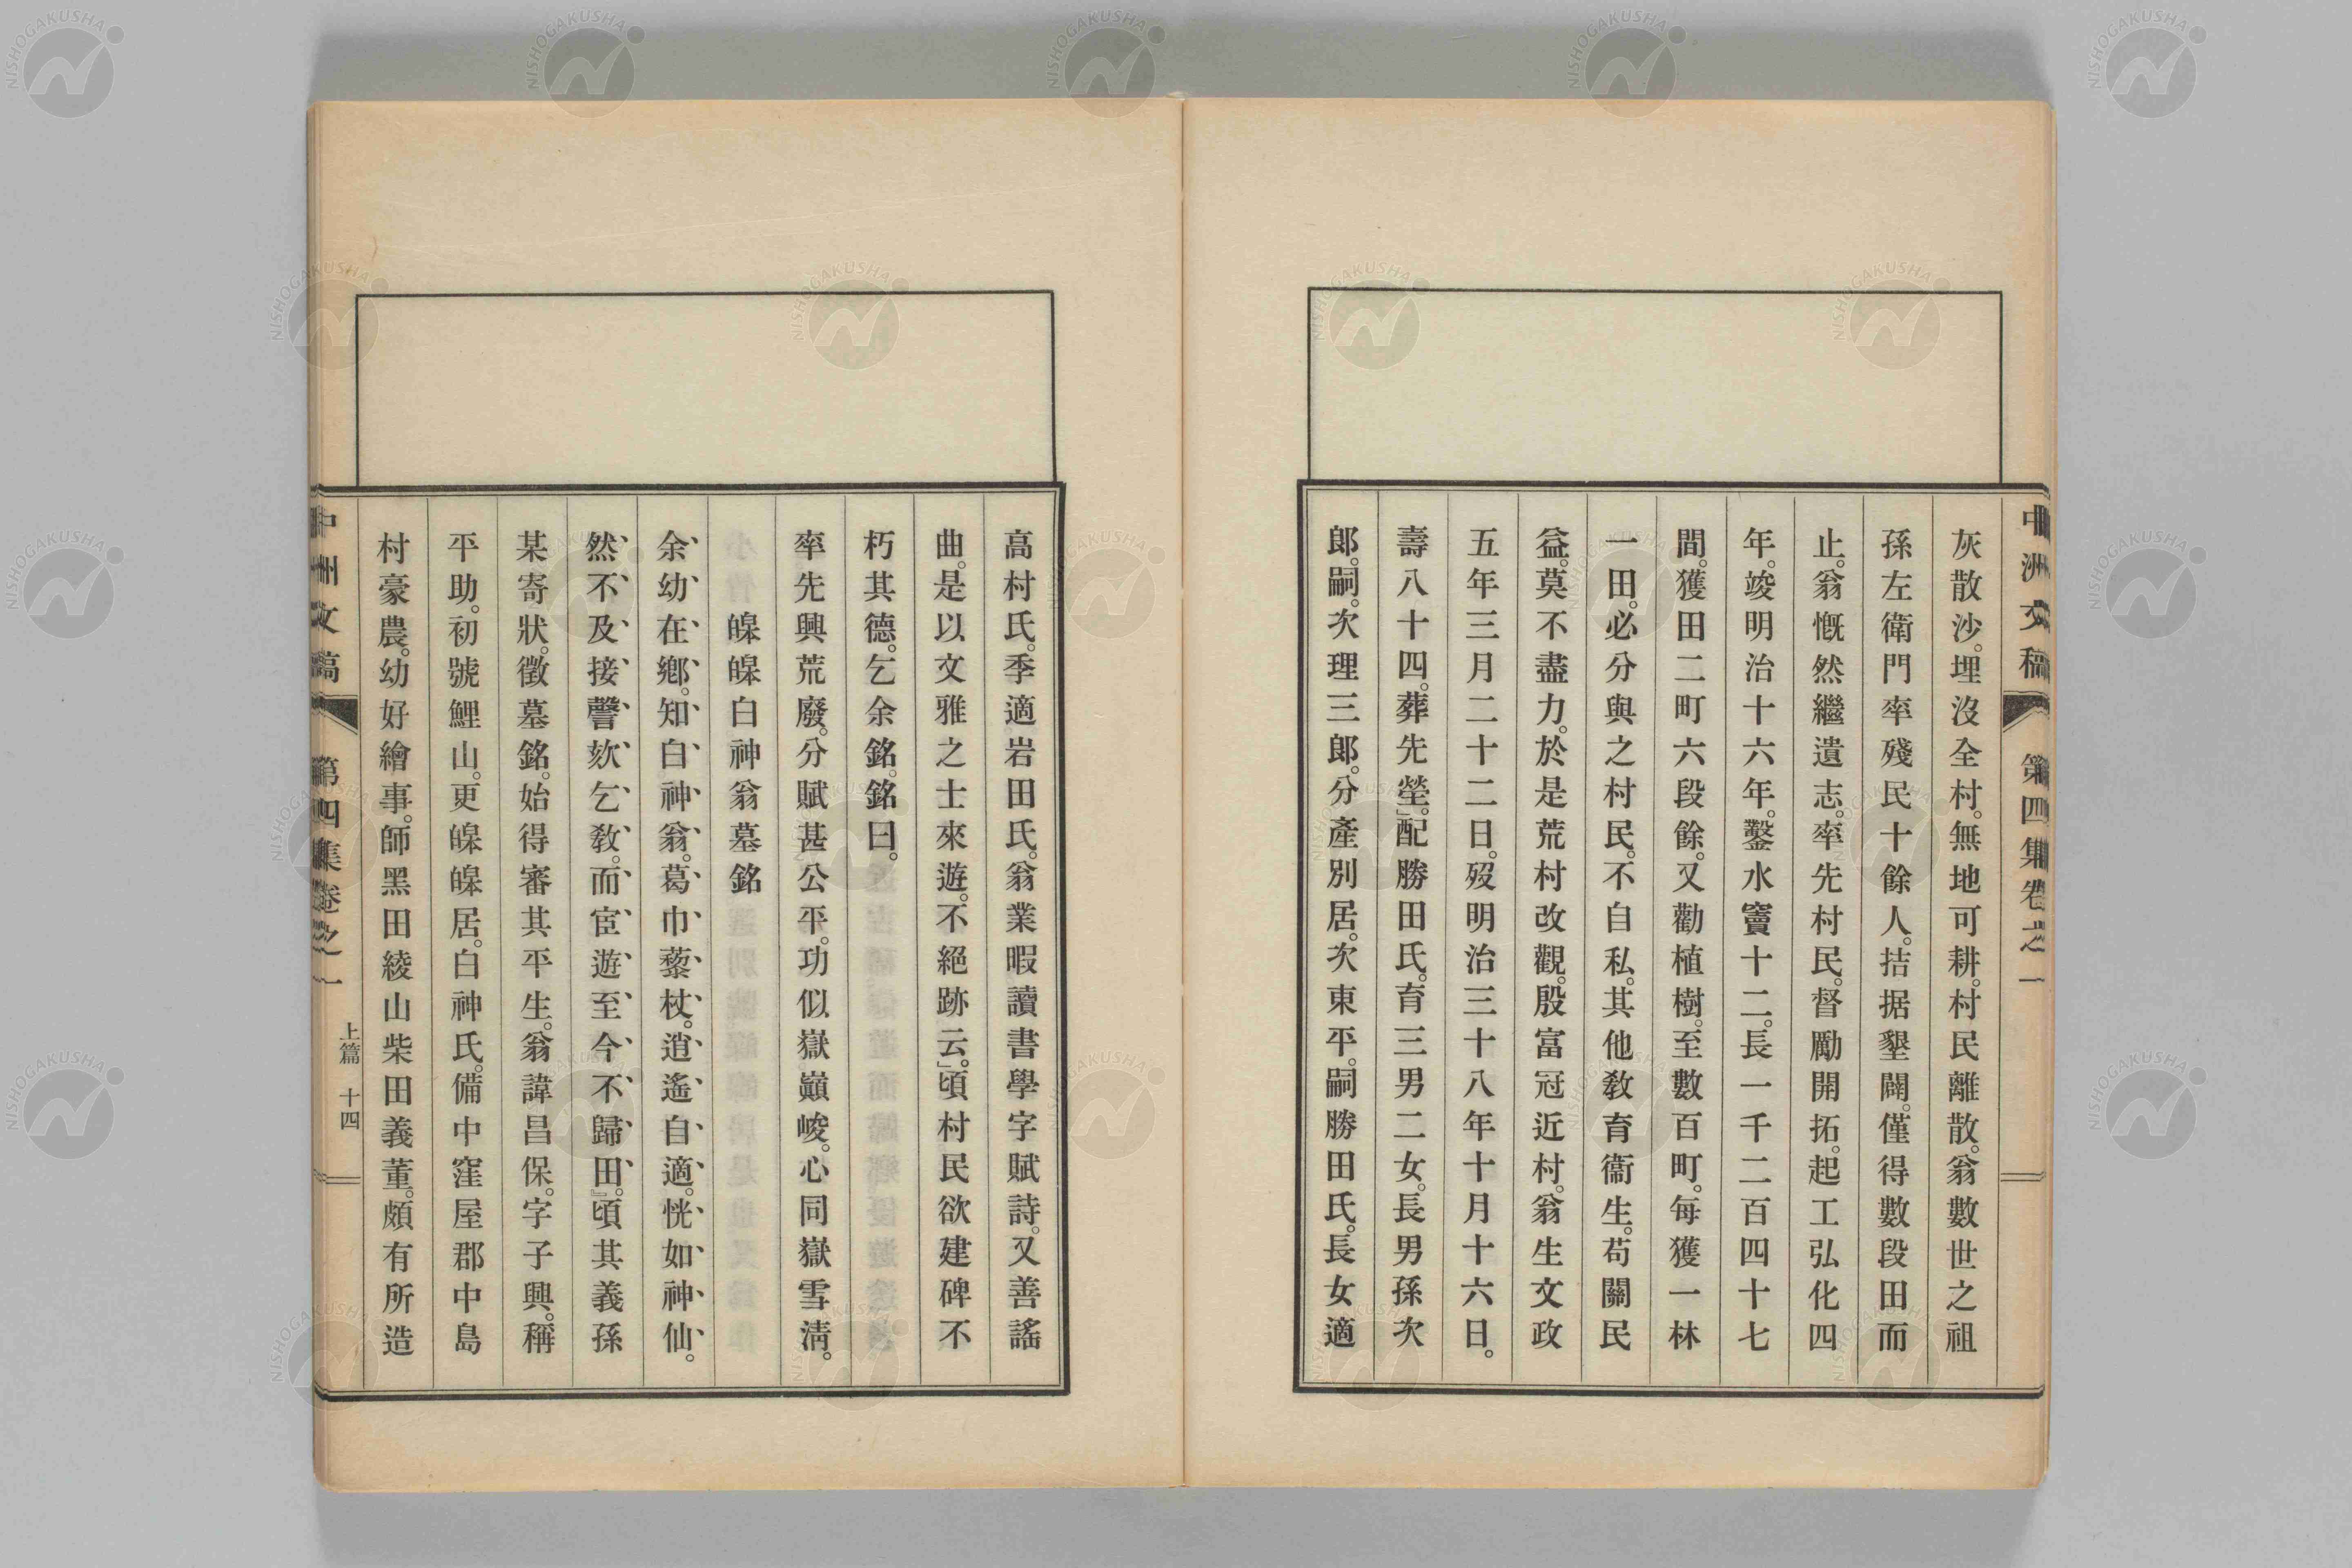 中洲文稿 第四集卷之一
灰散沙。埋沒全村。無地可耕。村民離散。翁數世之祖
孫左衛門率殘民十餘人。拮据墾闢。僅得數段田而
止。翁慨然繼遺志。率先村民。督勵開拓。起工弘化四
年。竣明治十六年。鑿水竇十二。長一千二百四十七
間。獲田二町六段餘。又勸植樹。至數百町。每獲一林
一田。必分與之村民。不自私。其他教育衞生。苟關民
益。莫不盡力。於是荒村改觀。殷富冠近村。翁生文政
五年三月二十二日。歿明治三十八年十月十六日。
壽八十四。葬先塋。』配勝田氏。育三男二女。長男孫次
郎。嗣。次理三郎。分產別居。次東平。嗣勝田氏。長女適
高村氏。季適岩田氏。翁業暇讀書學字賦詩。又善謠
曲。是以文雅之士來遊。不絕跡云。』頃村民欲建碑不
朽其德。乞余銘。銘曰。
率先興荒廢。分賦甚公平。功似嶽巓峻。心同嶽雪淸。
皡皡白神翁墓銘
余、幼、在、鄕。知、白、神、翁。葛、巾、藜、杖。逍、遙、自、適。恍、如、神、仙、。
然、不、及、接、謦、欬、乞、教。而、宦、遊、至、今、不、歸、田。』頃其義孫
某寄狀。徵墓銘。始得審其平生。翁諱昌保。字子興。稱
平助。初號鯉山。更皡皡居。白神氏。備中窪屋郡中島
村豪農。幼好繪事。師黑田綾山柴田義董。頗有所造
中洲文稿 第四集卷之一 上篇 十四
NISHOGAKUSHA